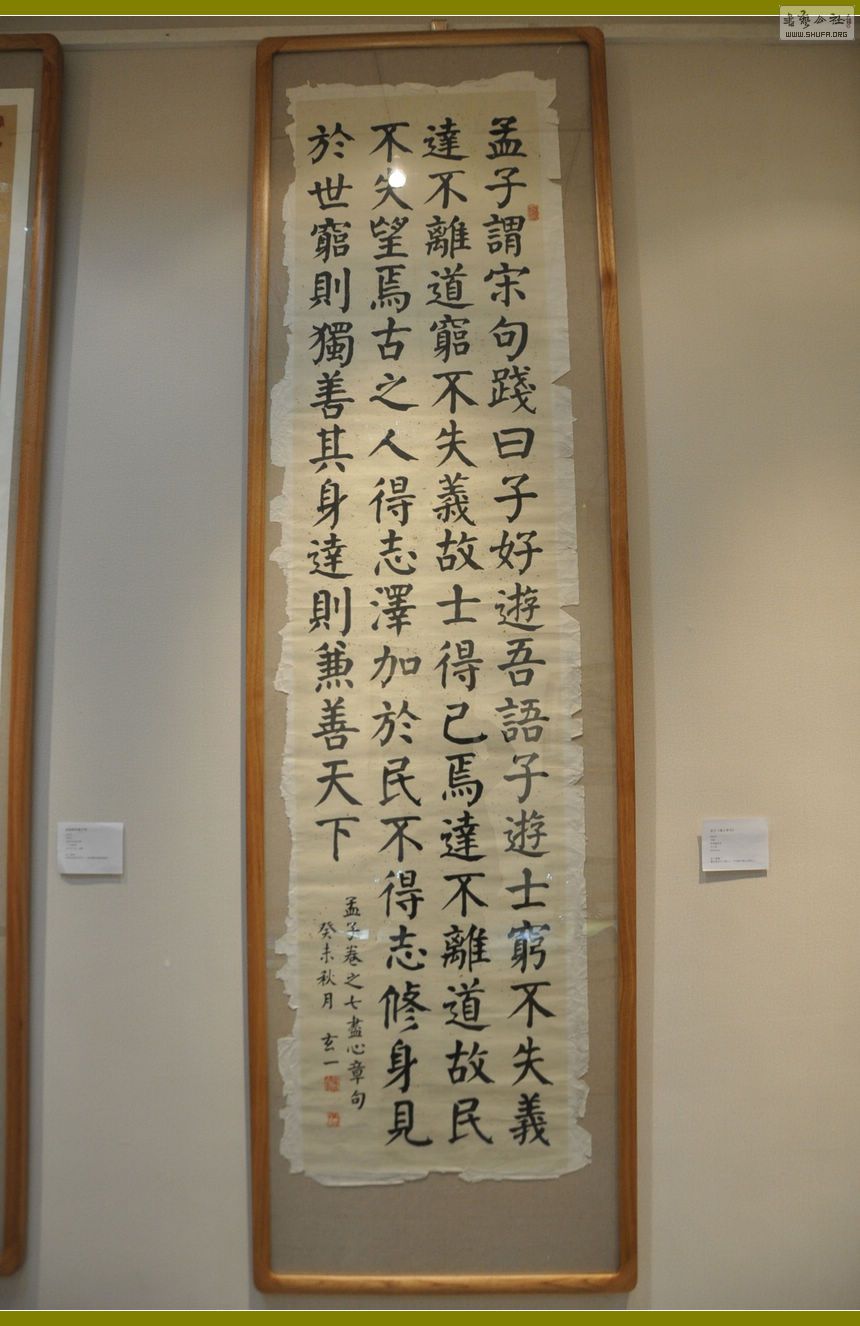 孟子謂宋句踐曰子好遊吾語子遊士窮不失義
達不離道窮不失義故士得己焉達不離道故民
不失望焉古之人得志澤加於民不得志修身見
於世窮則獨善其身達則兼善天下
孟子卷之七盡心章句
癸未秋月 玄一
WWW.SHUFA.ORG